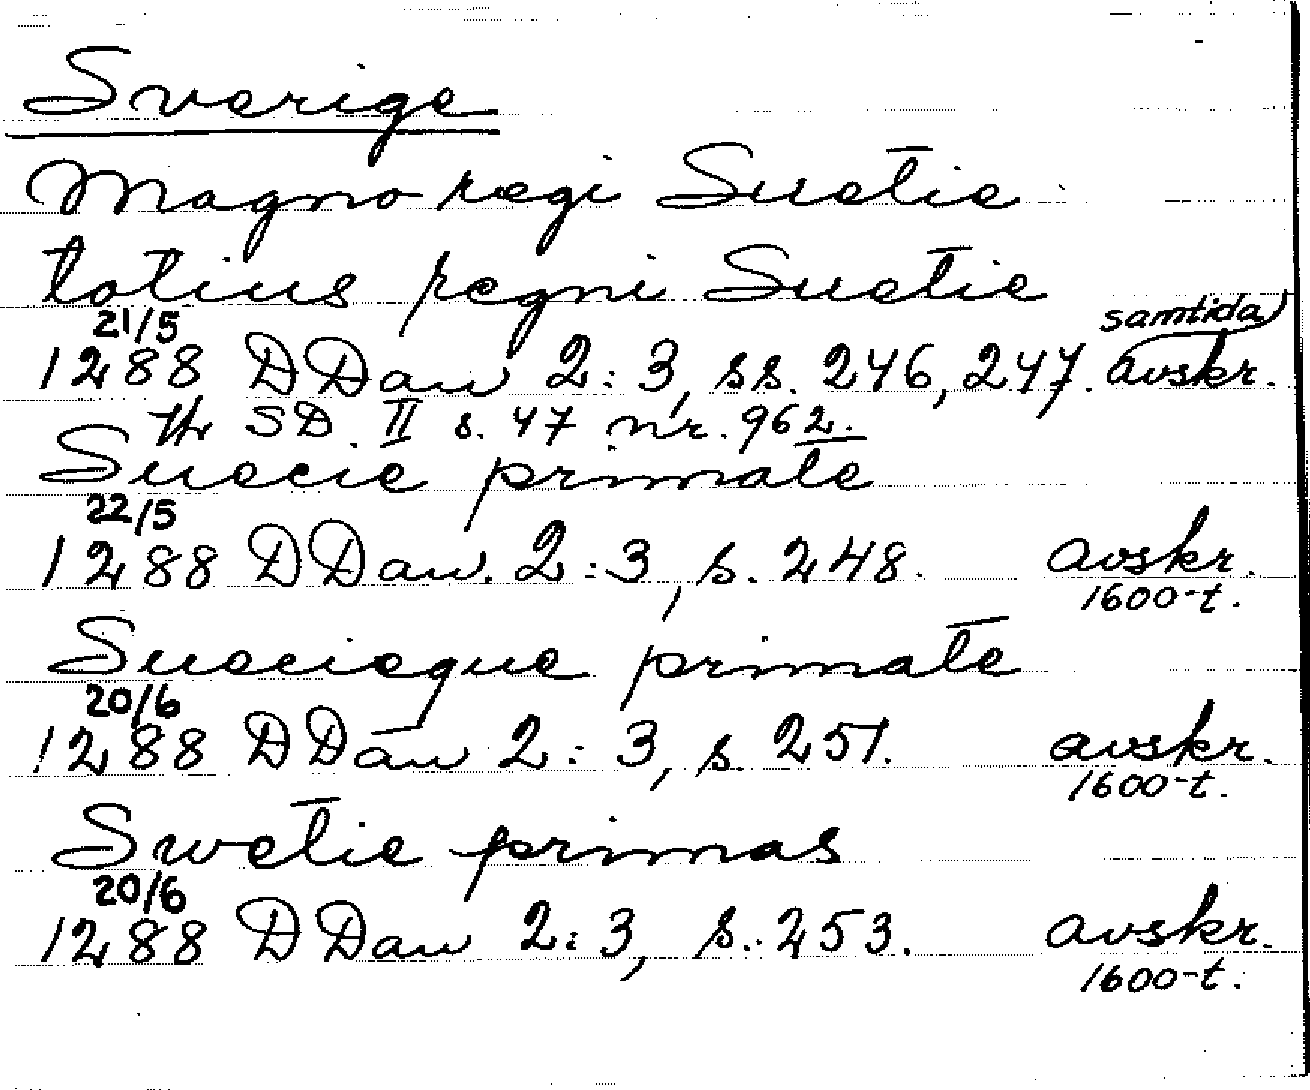 Sverige
Magno regi Suetie
totius regni Suetie
21/5 samtida
1288 DDan 2:3, ss. 246, 247. avskr.
tr SD. II s. 47 nr. 962.
Suecie primate
22/5
1288 DDan. 2:3, s. 248. avskr.
1600-t.
Suecieque primate
20/6
1288 DDan 2:3, s. 251. avskr.
1600-t.
Swetie primas
20/6
1288 DDan 2:3, s. 253. avskr.
1600-t.